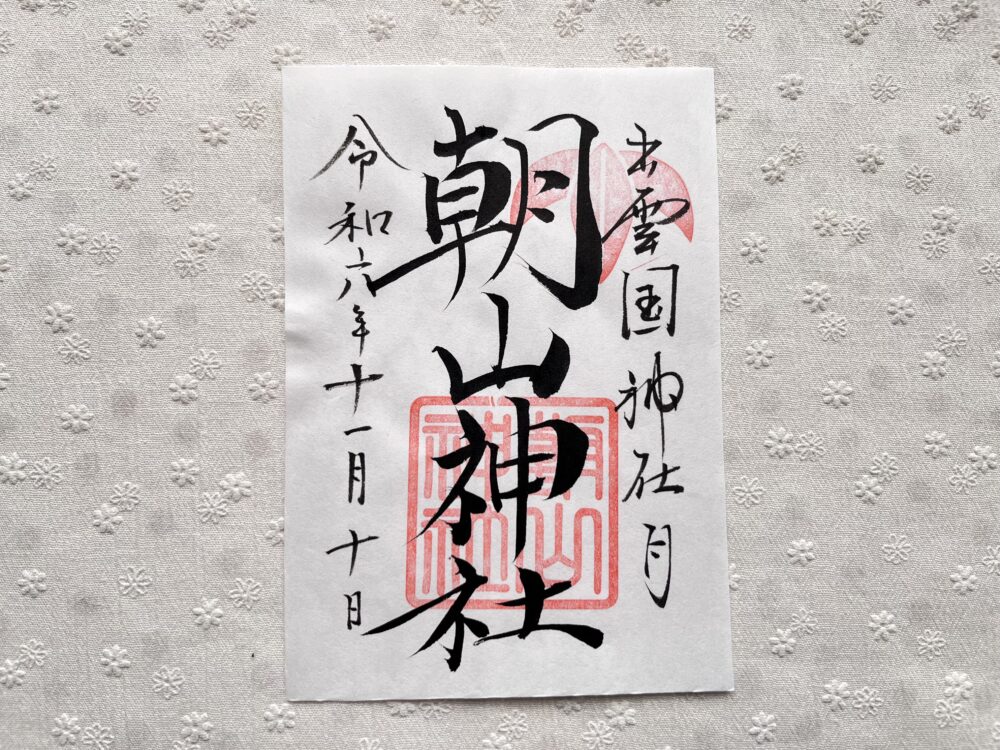 出雲国神在月
朝山神社
令和六年十一月十日
朝山
神社